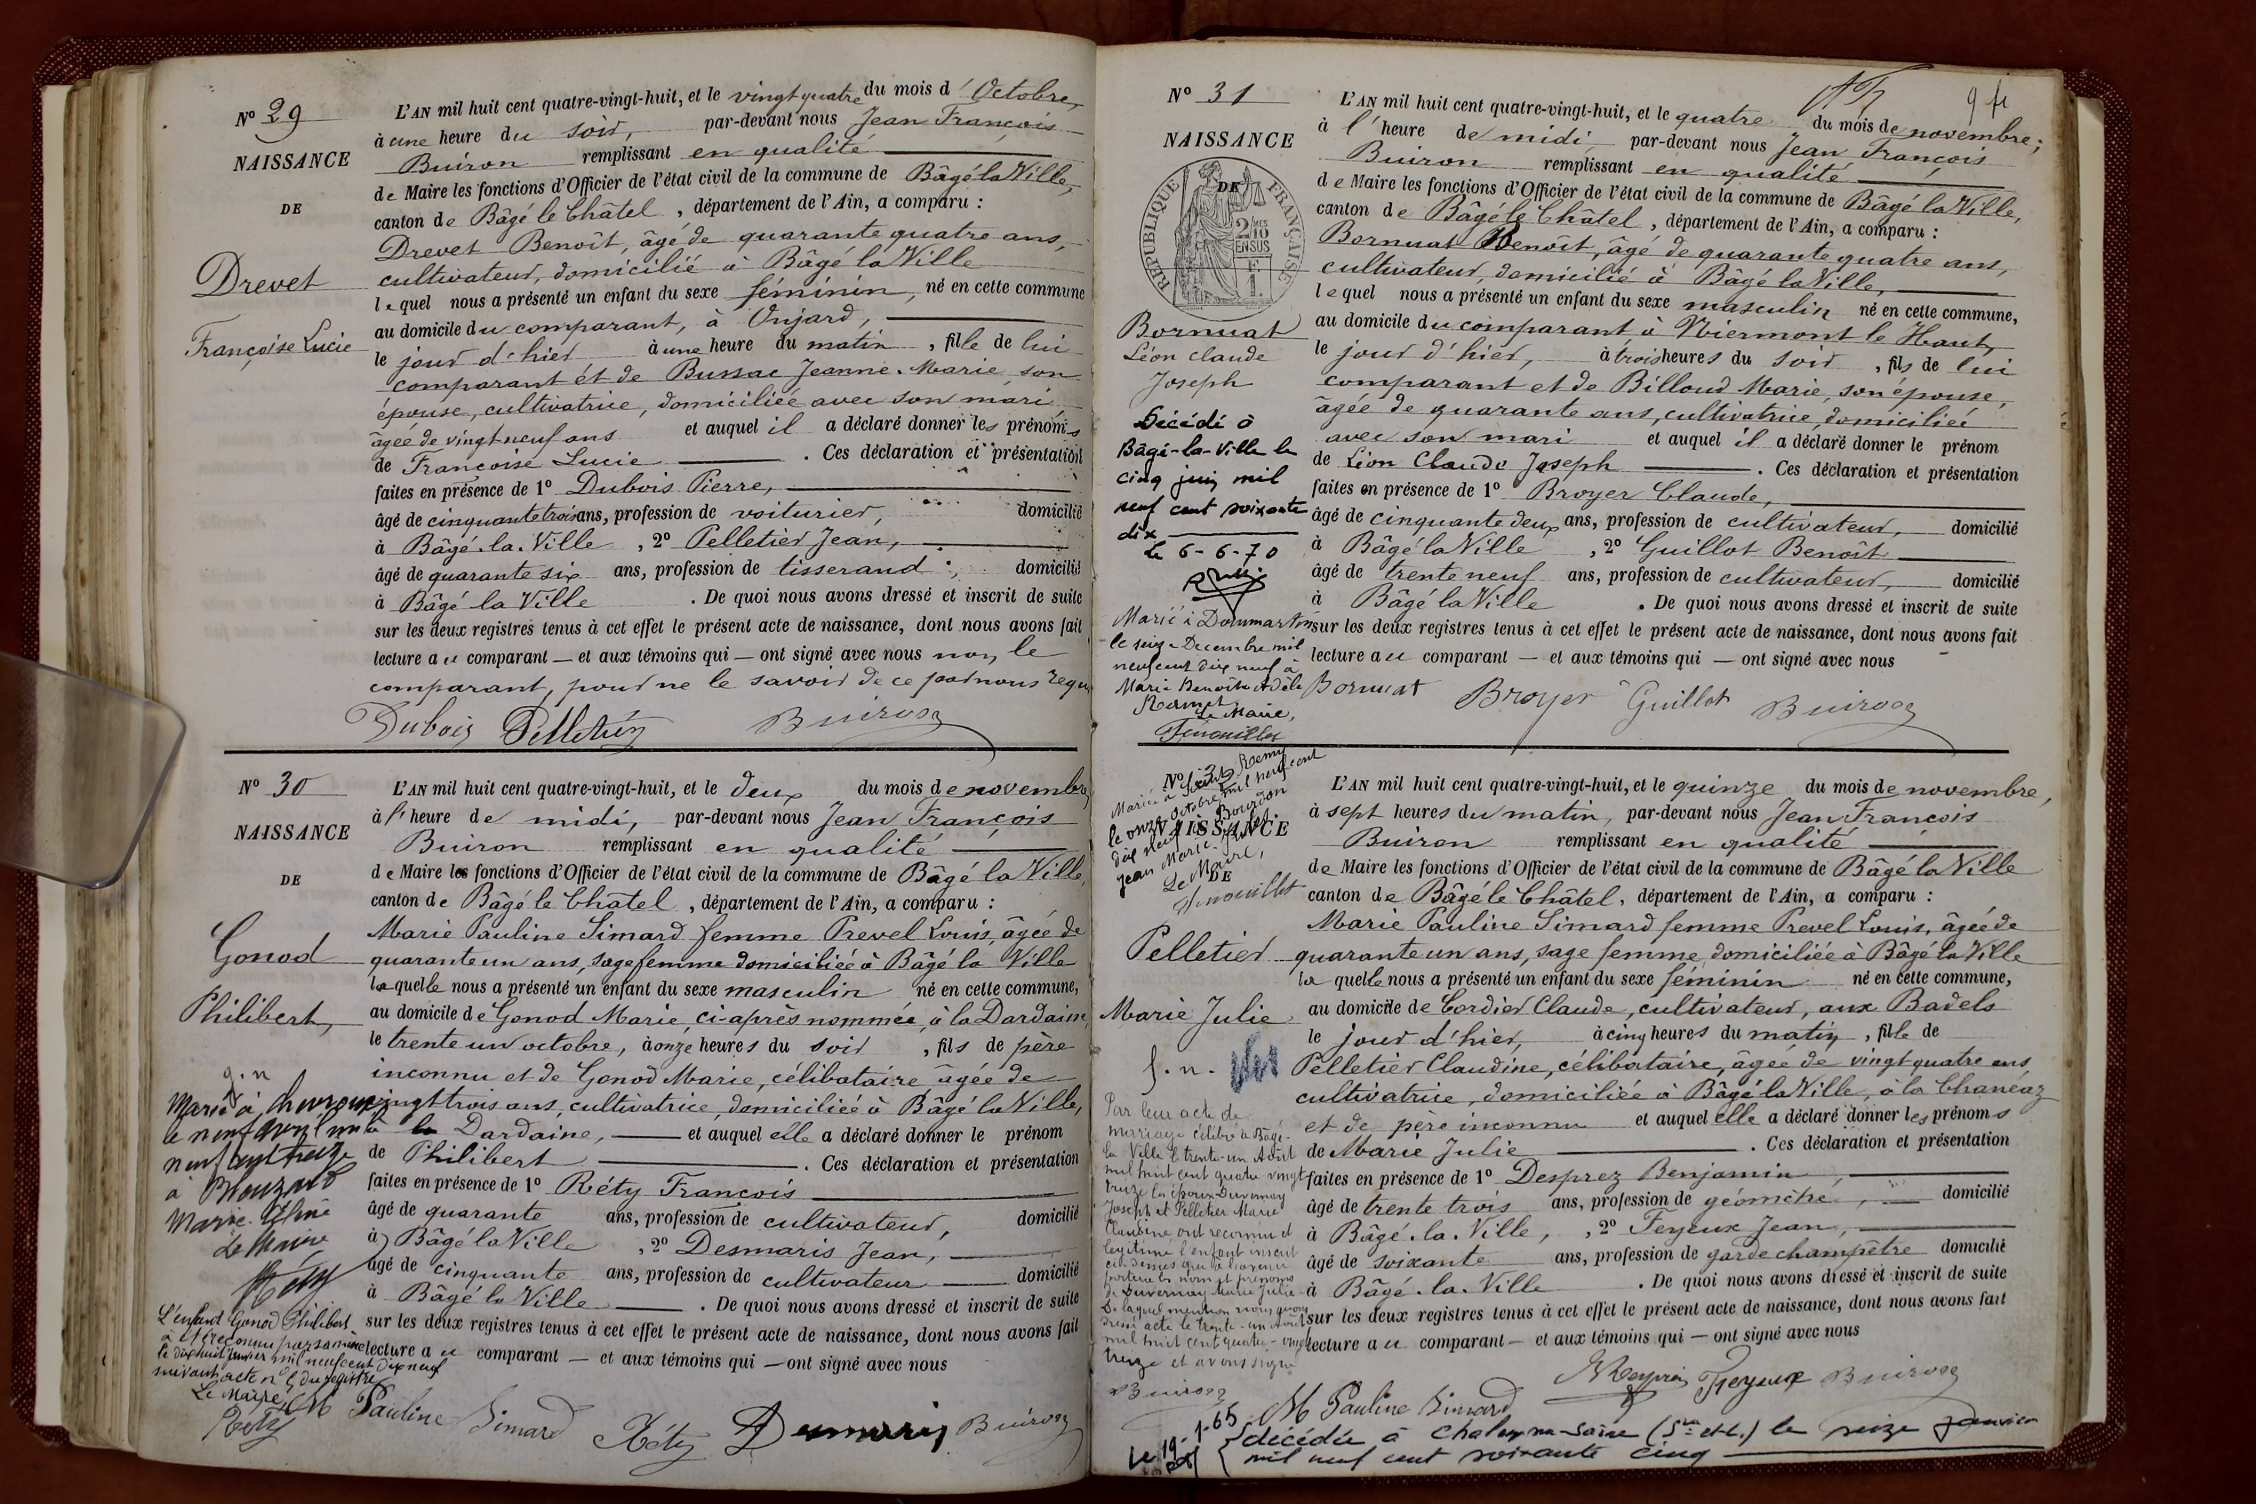 N° 29
NAISSANCE
DE
Drevet
Françoise Lucie
L'AN mil huit cent quatre-vingt-huit, et le vingt quatre du mois d'Octobre,
à une heure du soir, par-devant nous Jean François
Buiron remplissant en qualité
de Maire les fonctions d'Officier de l'état civil de la commune de Bâgé la Ville,
canton de Bâgé le Châtel, département de l'Ain, a comparu :
Drevet Benoît, âgé de quarante quatre ans,
cultivateur, domicilié à Bâgé la Ville
lequel nous a présenté un enfant du sexe féminin, né en cette commune
au domicile du comparant, à Onjard,
le jour d'hier à une heure du matin, fille de lui
comparant et de Bussac Jeanne Marie, son
épouse, cultivatrice, domiciliée avec son mari
âgée de vingt neuf ans et auquel il a déclaré donner les prénoms
de Françoise Lucie. Ces déclaration et présentation
faites en présence de 1° Dubois Pierre,
âgé de cinquante trois ans, profession de voiturier, domicilié
à Bâgé-la-Ville, 2° Pelletier Jean,
âgé de quarante six ans, profession de tisserand, domicilié
à Bâgé la Ville. De quoi nous avons dressé et inscrit de suite
sur les deux registres tenus à cet effet le présent acte de naissance, dont nous avons fait
lecture au comparant — et aux témoins qui — ont signé avec nous non le
comparant, pour ne le savoir de ce par nous requis
Dubois Pelletier Buiron
N° 30
NAISSANCE
DE
Gonod
Philibert,
g. n
Marié à Chevroux
le neuf avril mil
neuf cent treize
à
Marie
Le Maire
Réty
L'enfant Gonod Philibert
a été reconnu par sa mère
le dix huit janvier mil neuf cent dix neuf
suivant acte n° 5 du registre
Le Maire
Réty
L'AN mil huit cent quatre-vingt-huit, et le deux du mois de novembre
à l'heure de midi, par-devant nous Jean François
Buiron remplissant en qualité
de Maire les fonctions d'Officier de l'état civil de la commune de Bâgé la Ville,
canton de Bâgé le Châtel, département de l'Ain, a comparu :
Marie Pauline Simard femme Prevel Louis, âgée de
quarante un ans, sage femme domiciliée à Bâgé la Ville
laquelle nous a présenté un enfant du sexe masculin né en cette commune,
au domicile de Gonod Marie, ci-après nommée, à la Dardaine,
le trente un octobre, à onze heures du soir, fils de père
inconnu et de Gonod Marie, célibataire âgée de
vingt trois ans, cultivatrice, domiciliée à Bâgé la Ville,
à la Dardaine, et auquel elle a déclaré donner le prénom
de Philibert. Ces déclaration et présentation
faites en présence de 1° Réty François
âgé de quarante ans, profession de cultivateur, domicilié
à Bâgé la Ville, 2° Desmaris Jean,
âgé de cinquante ans, profession de cultivateur domicilié
à Bâgé la Ville. De quoi nous avons dressé et inscrit de suite
sur les deux registres tenus à cet effet le présent acte de naissance, dont nous avons fait
lecture au comparant — et aux témoins qui — ont signé avec nous
M Pauline Simard Réty Demaris Buiron
9 f
N° 31
NAISSANCE
DE
RÉPUBLIQUE FRANÇAISE
2/10 EN SUS
Bornuat
Léon Claude
Joseph
Décédé à
Bâgé-la-Ville le
cinq juin mil
neuf cent soixante
dix
Le 6-6-70
Marié à Dommartin
le seize Decembre mil
neuf cent dix neuf à
Marie Benoîte Adèle
Le Maire,
Fenouillet
L'AN mil huit cent quatre-vingt-huit, et le quatre du mois de novembre;
à l'heure de midi, par-devant nous Jean François
Buiron remplissant en qualité
de Maire les fonctions d'Officier de l'état civil de la commune de Bâgé la Ville,
canton de Bâgé le Châtel, département de l'Ain, a comparu :
Bornuat Benoît, âgé de quarante quatre ans,
cultivateur, domicilié à Bâgé la Ville,
lequel nous a présenté un enfant du sexe masculin né en cette commune,
au domicile du comparant à Niermont le Haut,
le jour d'hier, à trois heures du soir, fils de lui
comparant et de Billoud Marie, son épouse,
âgée de quarante ans, cultivatrice, domiciliée
avec son mari et auquel il a déclaré donner le prénom
de Léon Claude Joseph. Ces déclaration et présentation
faites en présence de 1° Broyer Claude,
âgé de cinquante deux ans, profession de cultivateur, domicilié
à Bâgé la Ville, 2° Guillot Benoît
âgé de trente neuf ans, profession de cultivateur, domicilié
à Bâgé la Ville. De quoi nous avons dressé et inscrit de suite
sur les deux registres tenus à cet effet le présent acte de naissance, dont nous avons fait
lecture au comparant — et aux témoins qui — ont signé avec nous
Bornuat Broyer Guillot Buiron
N°
NAISSANCE
DE
Mariée à Saint Remy
le onze Octobre mil neuf cent
dix neuf à Bourdon
Jean Marie Jules
Le Maire,
Fenouillet
Pelletier
Marie Julie
f. n.
Par leur acte de
mariage célébré à Bâgé-
la Ville le trente-un Août
mil huit cent quatre vingt
treize les époux Duvernay
Joseph et Pelletier Marie
Claudine ont reconnu et
légitimé l'enfant inscrit
ci-dessus qui à l'avenir
portera les nom et prénoms
de Duvernay Marie Julie
De laquelle mention nous avons
dressé acte le trente-un Août
mil huit cent quatre-vingt
treize et avons signé
Buiron
L'AN mil huit cent quatre-vingt-huit, et le quinze du mois de novembre,
à sept heures du matin, par-devant nous Jean François
Buiron remplissant en qualité
de Maire les fonctions d'Officier de l'état civil de la commune de Bâgé la Ville
canton de Bâgé le Châtel, département de l'Ain, a comparu :
Marie Pauline Simard femme Prevel Louis, âgée de
quarante un ans, sage femme, domiciliée à Bâgé la Ville
laquelle nous a présenté un enfant du sexe féminin né en cette commune,
au domicile de Cordier Claude, cultivateur, aux Badels
le jour d'hier, à cinq heures du matin, fille de
Pelletier Claudine, célibataire, âgée de vingt quatre ans
cultivatrice, domiciliée à Bâgé la Ville, à la Chanéaz
et de père inconnu et auquel elle a déclaré donner les prénoms
de Marie Julie. Ces déclaration et présentation
faites en présence de 1° Desprez Benjamin,
âgé de trente trois ans, profession de géomètre, domicilié
à Bâgé-la-Ville, 2° Feyeux Jean,
âgé de soixante ans, profession de garde champêtre domicilié
à Bâgé-la-Ville. De quoi nous avons dressé et inscrit de suite
sur les deux registres tenus à cet effet le présent acte de naissance, dont nous avons fait
lecture au comparant — et aux témoins qui — ont signé avec nous
M Pauline Simard Feyeux Buiron
Le 19-1-65
décédée à Chalon-sur-Saône (S. et L.) le seize janvier
mil neuf cent soixante cinq